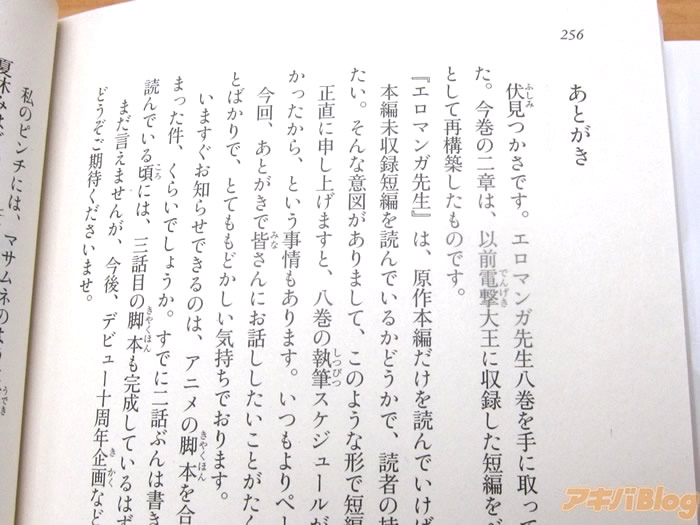 256
あとがき
伏見つかさです。エロマンガ先生八巻を手に取って
た。今巻の二章は、以前電撃大王に収録した短編を
として再構築したものです。
『エロマンガ先生』は、原作本編だけを読んでいけば
本編未収録短編を読んでいるかどうかで、読者の持
たい。そんな意図がありまして、このような形で短編
正直に申し上げますと、八巻の執筆スケジュールが
かったから、という事情もあります。いつもよりペー
今回、あとがきで皆さんにお話ししたいことがたく
とばかりで、とてももどかしい気持ちでおります。
いますぐお知らせできるのは、アニメの脚本を合
まった件、くらいでしょうか。すでに二話ぶんは書き
読んでいる頃には、三話目の脚本も完成しているはず
まだ言えませんが、今後、デビュー十周年企画など
どうぞご期待くださいませ。
私のピンチには、マサムネのほう
夏休みは
アキバBlog